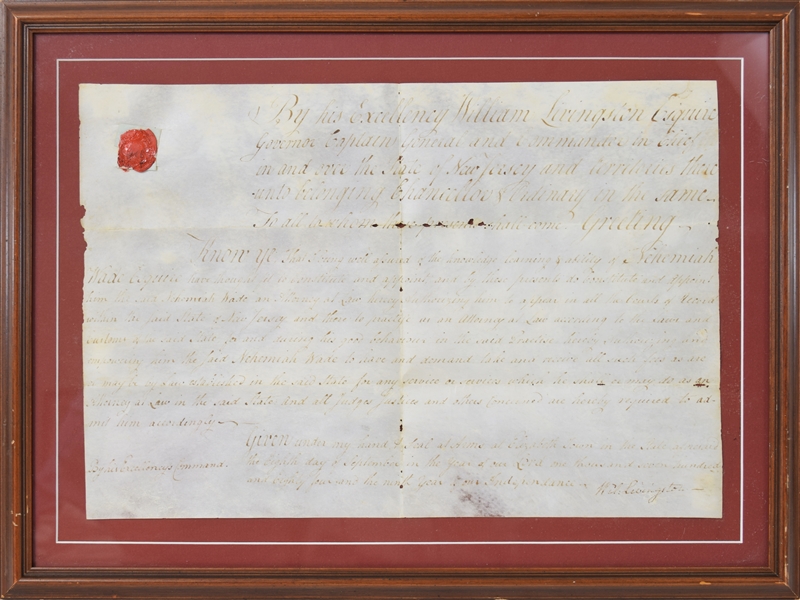 By his Excellency William Livingston Esquire
Governor Captain General and Commander in Chief
in and over the State of New Jersey and Territories there
unto belonging Chancellor & Ordinary in the same
To all to whom these presents shall come Greeting
Know Ye that I being well assured of the knowledge learning & ability of Nehemiah
Wade Esquire have thought fit to constitute and appoint and by these presents do constitute and appoint
him the said Nehemiah Wade an Attorney at Law hereby authorizing him to appear in all the Courts of Record
within the said State of New Jersey and there to practice as an Attorney at Law according to the Laws and
customs of the said State for and during his good behaviour in the said Practice hereby
empowering him the said Nehemiah Wade to have and demand take and receive all such fees as are
or may be established in the said State for any service or services which he shall or may do as an
Attorney at Law in the said State and all Judges Justices and others concerned are hereby required to ad-
mit him accordingly
Given under my hand & seal at Arms at Elizabeth Town in the State aforesaid
the Eighth day of September in the year of our Lord one thousand seven hundred
and eighty four and the ninth Year of our Independence
By his Excellency's Command.
Wil: Livingston